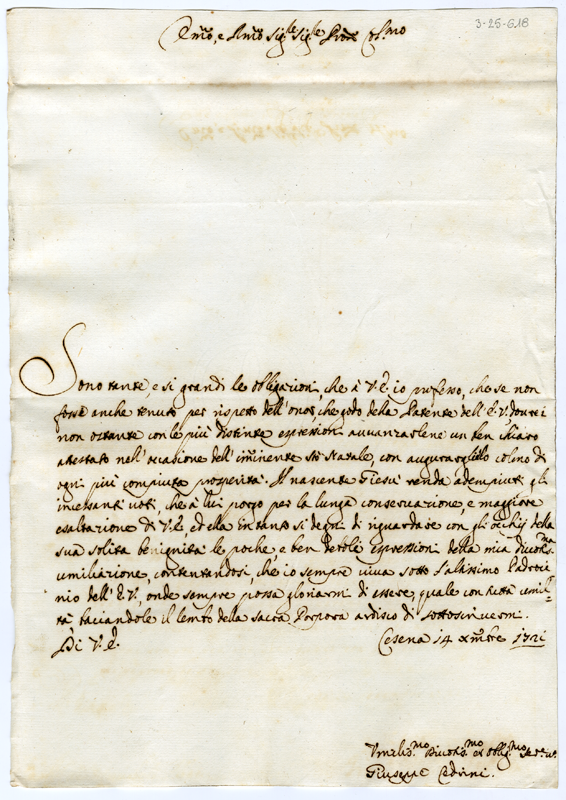 3-25-618
Em̃o, e Rm̃o Sig.re Sig.re Pr̃one Col.mo
Sono tante, e si grandi le obligazioni, che à V.E. io professo, che se non
fossi anche tenuto per rispetto dell'onor, che godo della Patente dell'E.V. dourei
non ostante con le più distinte espressioni auuanzarlene un ben chiaro
attestato nell'occasione dell'im̃inente S.to Natale, con augurarglielo colmo di
ogni più compiuta prosperità. Il nascente Giesù renda adempiuti gli
incessanti uoti, che à lui porgo per la lunga conseruazione, e maggiore
esaltazione di V.E. ed ella intanto si degni di riguardare con gli occhij della
sua solita benignità le poche, e ben deboli espressioni della mia diuotis.ma
umiliazione, contentandosi, che io sempre uiua sotto l'altissimo Padroci
nio dell'E.V. onde sempre possa gloriarmi di essere, quale con tutta umil-
tà baciandole il lembo della sacra Porpora ardisco di sottoscriuermi.
Di V.E.
Cesena 14 Xm̃bre 1721
Vmilis.mo Diuotis.mo et Oblig.mo
Giuseppe